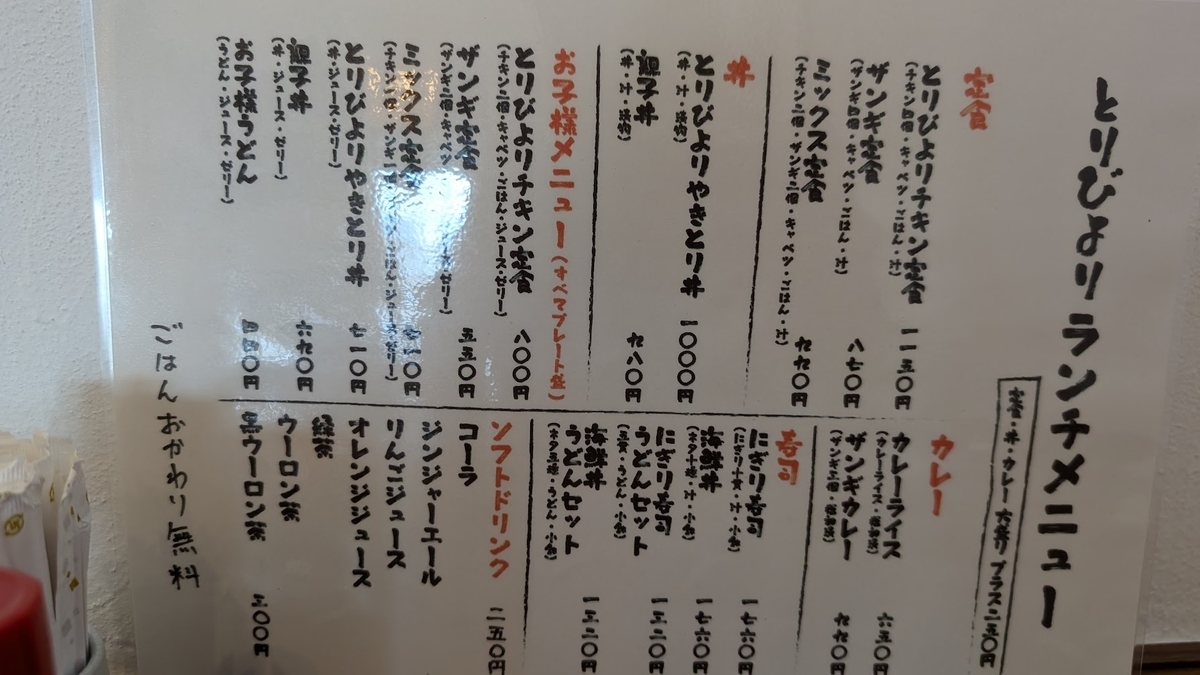 とりびよりランチメニュー
定食・丼・カレー大盛り プラス二五〇円
定食
とりびよりチキン定食 一一五〇円
(チキン四個・キャベツ・ごはん・汁)
ザンギ定食 八七〇円
(ザンギ四個・キャベツ・ごはん・汁)
ミックス定食 九九〇円
(チキン二個・ザンギ二個・キャベツ・ごはん・汁)
丼
とりびよりやきとり丼 一〇〇〇円
(丼・汁・漬物)
親子丼 九八〇円
(丼・汁・漬物)
お子様メニュー(すべてプレート盛)
とりびよりチキン定食 八〇〇円
(チキン二個・キャベツ・ごはん・ジュース・ゼリー)
ザンギ定食 五五〇円
ミックス定食 七一〇円
とりびよりやきとり丼 七一〇円
(丼・ジュース・ゼリー)
親子丼 六九〇円
(丼・ジュース・ゼリー)
お子様うどん 四四〇円
(うどん・ジュース・ゼリー)
カレー
カレーライス 六五〇円
(カレーライス・福神漬)
ザンギカレー 九九〇円
(ザンギ二個・福神漬)
寿司
にぎり寿司 一七六〇円
(にぎり十貫・汁・小鉢)
海鮮丼 一七六〇円
(ネタ十番・汁・小鉢)
にぎり寿司
うどんセット 一三二〇円
(五貫・うどん・小鉢)
海鮮丼
うどんセット 一三二〇円
(ネタ五種・うどん・小鉢)
ソフトドリンク 二五〇円
コーラ
ジンジャーエール
りんごジュース
オレンジジュース
緑茶
ウーロン茶
黒ウーロン茶 三〇〇円
ごはんおかわり無料